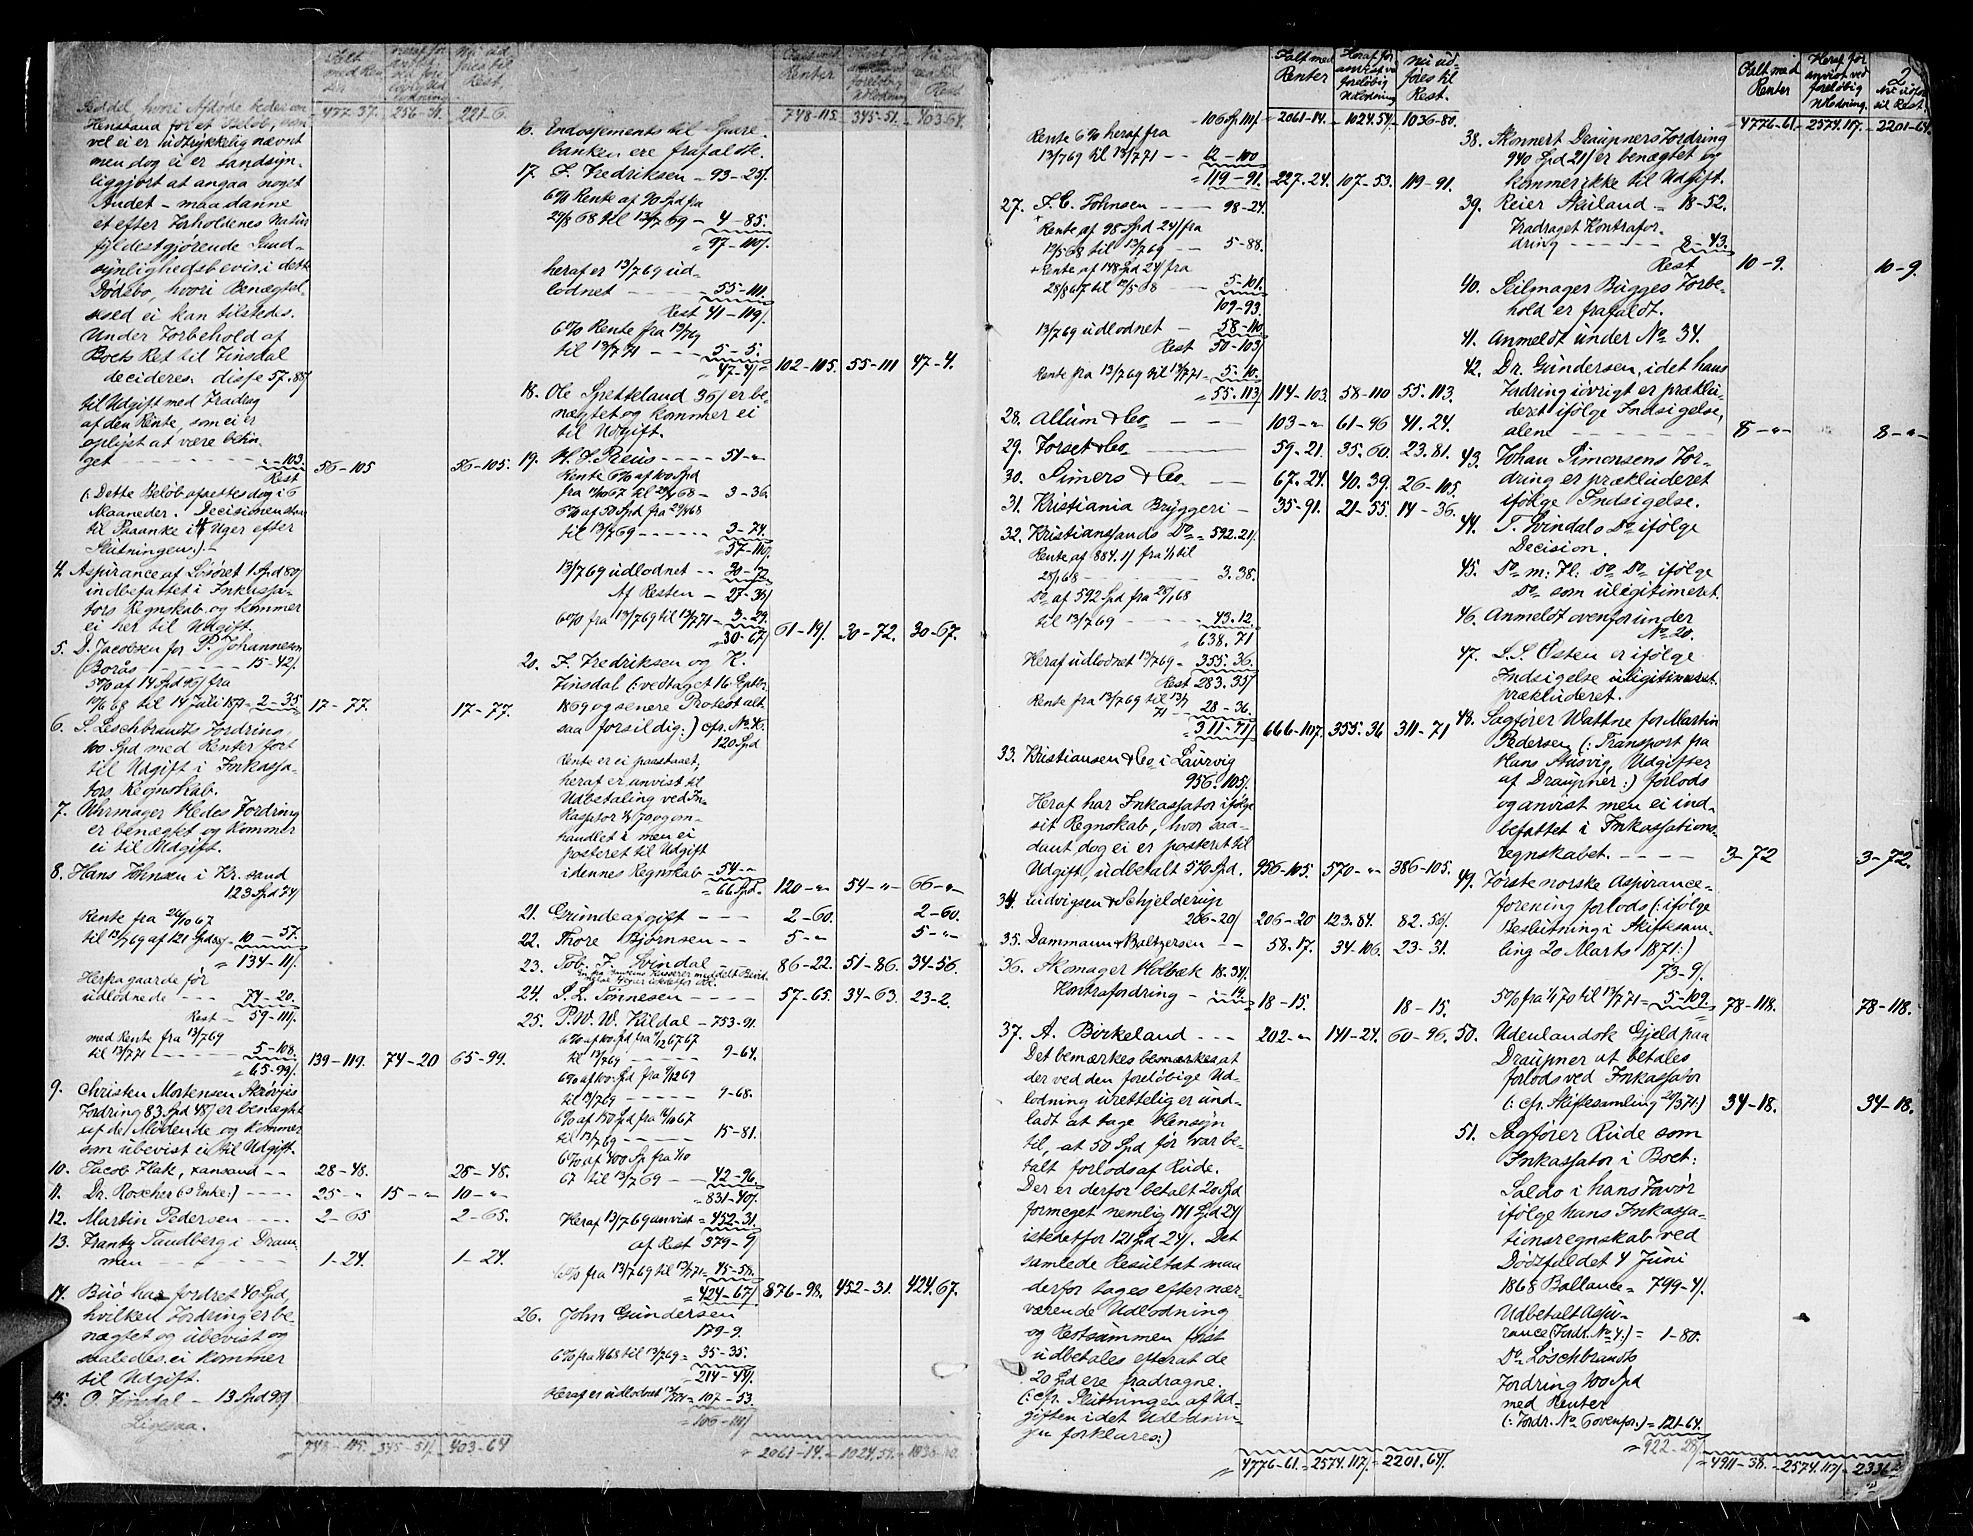 Ialt
med Ren-
ter
Nu ud
føres til
Rest.
477-37. 256-31. 221-6.
Seddel, hvori Afdøde beder om
Henstand for et Beløb, som
vel ei er udtrykkelig nævnt
men dog ei er sandsyn-
liggjort at angaa noget
Andet – maa danne
et efter Forholdenes Natur
fyldestgjørende Sand-
synlighedsbevis i dette
Dødsbo, hvori Benægtel-
sesed ei kan tilstedes.
Under Forbehold af
Boets Ret til Finsdal
decideres: disse 57-88
til Udgift med Fradrag
af den Rente, som ei er
oplyst at være betin-
get – – – "-103
Rest 56-105 56-105.
(: Dette Beløb afsættes dog i 6
Maaneder. Decisionen staar
til Paaanke i 4 Uger efter
Slutningen.) –
4. Aspurance af Løsøret 1 Spd 80
indbefattet i Inkassa-
tors Regnskab og kommer
ei her til Udgift.
5. D. Jacobsen for P. Johannesen
Borås – – – 15-42
5% af 14 Spd 95 fra
10/6 68 til 14 Juli 1871 = 2-35 17-77. 17-77.
6. S. Leschbrandts Fordring
100 Spd med Renter ført
til Udgift i Inkassa-
tors Regnskab.
7. Uhrmager Hedes Fordring
er benægtet og kommer
ei til Udgift.
8. Hans Johnsen i Kr. sand
123 Spd 74
Rente fra 26/10 67
til 13/7 69 af 121 Spd 89 = 10-57.
= 134-11.
Herfra gaar de før
udlodnede – – – 74-20.
Rest – 59-111.
med Rente fra 13/7 69
til 13/7 71 – – – 5-108.
= 65-99. 139-119. 74-20 65-99.
9. Christen Mortensen Strøvjes
Fordring 83 Spd 48 er benægtet
af de Mødende og kommer
som ubevist ei til Udgift.
10. Jacob Flak, Xansand – – 28-48. 28-48.
11. Dr. Roscher (s Enke:) – – – 25-" 15-" 10-"
12. Martin Pedersen – – – 2-65 2-65.
13. Frantz Tandberg i Dram-
men – – – 1-24. 1-24.
14. Buø har fordret 40 Spd,
hvilken Fordring er be-
nægtet og ubevist og
saaledes ei kommer
til Udgift.
15. O. Finsdal – 13 Spd 98
Ligesaa.
748-115. 345-51. 403-64
Renter
748-115. 345-51. 403-64.
16. Endossements til Spare-
banken ere frafaldte.
17. F. Fredriksen – 93-25.
6% Rente af 90 Spd fra
29/9 68 til 13/7 69 – 4-85.
= 97-110.
heraf er 13/7 69 ud-
lodnet – – – 55-111.
Rest 41-119.
6% Rente fra 13/7 69
til 13/7 71 – – – 5-5.
47-4. 102-105. 55-111 47-4.
18. Ole Spetteland 36 er be-
nægtet og kommer ei
til Udgift.
19. H. J. Preus – – – 51-"
Rente 6% af 100 Spd
fra 14/10 67 til 29/4 68 – 3-36.
6% af 50 Spd fra 29/4 68
til 13/7 69 – – – 3-74.
57-110.
13/7 69 udlodnet – – 30-72
Af Resten – 27-38
6% fra 13/7 69 til 13/7 71 – 3-29.
30-67. 61-19. 30-72. 30-67.
20. F. Fredriksen og H.
Finsdal (: vedtaget 16 Septbr.
1869 og senere Protest alt-
saa forsildig:) cfr. No 40.
120 Spd
Rente er ei paastaaet,
heraf er anvist til
Udbetaling ved In-
kassator 2/8 70 og om-
handlet i men ei
posteret til Udgift
i dennes Regnskab – 54-"
= 66 Spd. 120-" 54-" 66-"
21. Grundeafgift – – – 2-60. 2-60.
22. Thore Bjørnsen – – 5-" 5-"
23. Tob. F. Svindal – – 86-22. 51-86. 34-56.
24. S. L. Tønnesen – – – 57-65. 34-63. 23-2.
25. P. W. W. Kildal – 753-91.
6% af 100 Spd fra 9/12 67
til 13/7 69 – – – 9-64.
6% af 100 Spd fra 9/12 69
til 13/7 69 – – – 9-68.
6% af 150 Spd fra 16/10 67
til 13/7 69 – – – 15-81.
6% af 400 Sp fra 9/10
67 til 13/7 69 – – 42-96.
= 831-40.
Heraf 13/7 69 anvist = 452-31.
af Rest 379-9
6% fra 13/7 69 til 13/7 71 = 45-58.
= 424-67. 876-98. 452-31. 424-67.
26. John Gundersen
179-9.
6% fra 1/4 68 til 13/7 69 = 35-35.
= 214-44.
Heraf er udlodnet 13/7 71 = 107-53.
= 106-111
2061-14. = 1024-54. = 1036-80.
Ialt med
Renter
Heraf før
anvist ved
foreløbig
Udlodning
Nu ud-
føres til
Rest.
106 Spd 111 2061-14. 1024-54. 1036-80.
Rente 6% heraf fra
13/7 69 til 13/7 71 – – 12-100
= 119-91. 227-24. 107-53. 119-91.
27. A. C. Johnsen – – – 98-24.
Rente af 98 Spd 24 fra
12/5 68 til 13/7 69 – – 5-88.
+ Rente af 148 Spd 24 fra
28/8 67 til 12/5 68 – – – 5-101.
109-93.
13/7 69 udlodnet – 58-110
Rest 50-103
Rente fra 13/7 69 til 13/7 71 = 5-10.
= 55-113 114-103. 58-110 55-113.
28. Allum & Co – – – 103-" 61-96 41-24.
29. Forset & Co – – – 59-21. 35-60. 23-81.
30. Simers & Co – – 67-24. 40-39. 26-105.
31. Kristiania Bryggeri – 35-91. 21-55. 14-36.
32. Kristianssands Do = 592-21.
Rente af 884-1 fra 1/1 til
28/1 68 – – – 3-38.
Do af 592 Spd fra 28/1 68
til 13/7 69 – – – 43-12.
= 638-71
Heraf udlodnet 13/7 69 = 355-36.
Rest 283-35
Rente fra 13/7 69 til 13/7
71 – – 28-36.
= 311-71 666-107. 355-36 311-71
33. Kristiansen & Co i Laurvig
956-105.
Heraf har Inkassator ifølge
sit Regnskab, hvor saa-
dant dog ei er posteret til
Udgift, udbetalt 570 Spd. 956-105. 570-" 386-105.
34. Ludvigsen & Schjelderup
206-20 206-20 123-84. 82-56.
35. Dammann & Baltzersen – – 58-17. 34-106. 23-31.
36. Skomager Holbæk 18-34
Kontrafordring – "-19. 18-15. 18-15.
37. A. Birkeland – – – 202-" 141-24. 60-96.
Det bemærkes bemærkes, at
der ved den foreløbige Ud-
lodning urettelig er und-
ladt at tage Hensyn
til, at 50 Spd før var be-
talt forlods af Rude.
Der er derfor betalt 20 Spd
formeget nemlig 141 Spd 24
istedetfor 121 Spd 24. Det
samlede Resultat maa
derfor tages efter nær-
værende Udlodning
og Restsummen først
udbetales efterat de
20 Spd ere fradragne.
(: cfr. Slutningen af Ud-
giften i det Udlodnin-
gen forklares:)
= 4776-61. = 2574-117. = 2201-64.
Ialt med
Renter
Heraf før
anvist ved
foreløbig
Udlodning.
2
Nu udføres
til Rest.
4776-61. 2574-117. 2201-64.
38. Skonnert Draupners Fordring
940 Spd 21 er benægtet og
kommer ikke til Udgift.
39. Reier Skailand = 18-52.
Fradraget Kontrafor-
dring – – – 8-43.
Rest 10-9. 10-9.
40. Seilmager Bugges Forbe-
hold er frafaldt.
41. Anmeldt under No 34.
42. Dr. Gundersen, idet hans
Fordring iøvrigt er præklu-
deret ifølge Indsigelse,
alene – – – 8-" 8-"
43. Johan Simonsens For-
dring er prækluderet
ifølge Indsigelse.
44. T. Svindal Do ifølge
Decision.
45. Do m: Fl: Do Do ifølge
Do som ulegitimeret.
46. Anmeldt ovenfor under
No 20.
47. L. S. Osten er ifølge
Indsigelse ulegitimeret
prækluderet.
48. Sagfører Wattne for Martin
Pedersen (: Transport fra
Hans Ausvig, Udgifter
af Draupner:) forlods
og anvist men ei ind-
befattet i Inkassations-
regnskabet. – – – 3-72 3-72.
49. Første norske Aspurance-
forening forlods (: ifølge
Beslutning i Skiftesam-
ling 20 Marts 1871:)
73-9.
5% fra 1/1 70 til 13/7 71 = 5-109. 78-118. 78-118.
50. Udenlandsk Gjeld paa
Draupner at betales
forlods ved Inkassator
(: cfr. Skiftesamling 20/3 71:) 34-18. 34-18.
51. Sagfører Rude som
Inkassator i Boet:
Saldo i hans Favør
ifølge hans Inkassa-
tionsregnskab ved
Dødsfaldet 4 Juni
1868 Ballance = 799-4.
Udbetalt Assu-
rance (Fordr. No 4:) = 1-80.
Do Løschbrandts
Fordring 100 Spd
med Renter
(: Fordr. No 6 ovenfor:) = 121-64.
= 922-28 = 4911-38. = 2574-117. = 2336-